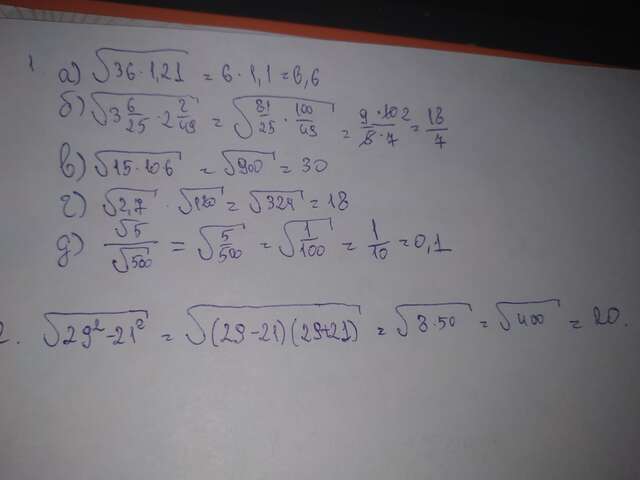 1. а) √36·1,21 = 6·1,1 = 6,6
б) √3 6/25 · 2 2/49 = √81/25 · 100/49 = 9·10 2/5·7 = 18/7
в) √15·10·6 = √900 = 30
г) √2,7 · √120 = √324 = 18
д) √5/√500 = √5/500 = √1/100 = 1/10 = 0,1
2. √29²-21² = √(29-21)(29+21) = √8·50 = √400 = 20.